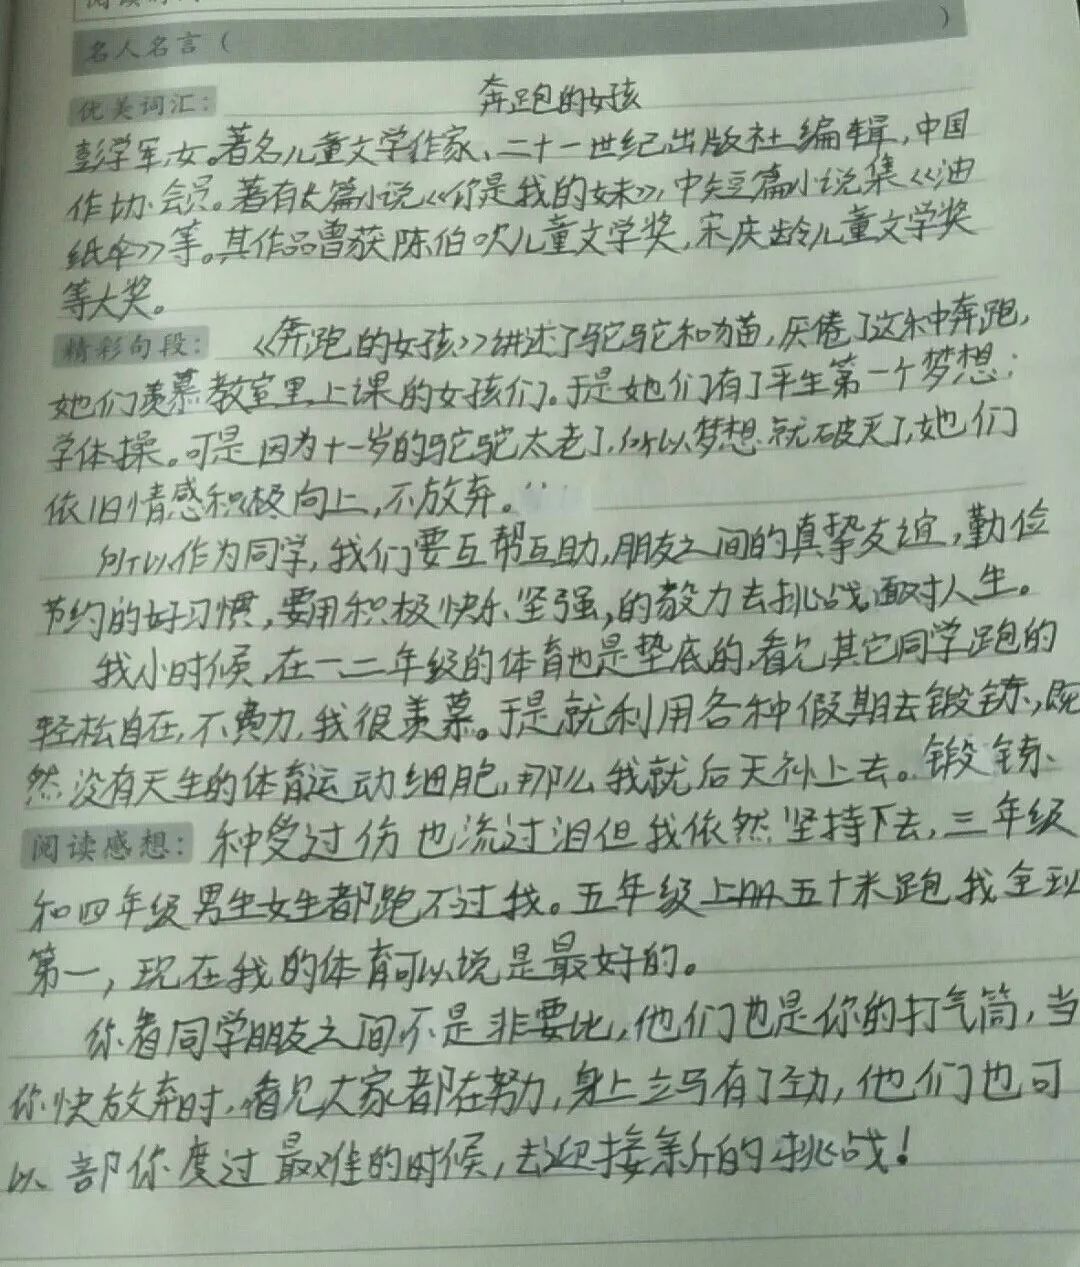 名人名言（ ）
优美词汇： 奔跑的女孩
彭学军,女。著名儿童文学作家、二十一世纪出版社编辑,中国
作协会员。著有长篇小说《你是我的妹》,中短篇小说集《油
纸伞》等。其作品曾获陈伯吹儿童文学奖,宋庆龄儿童文学奖
等大奖。
精彩句段： 《奔跑的女孩》讲述了驼驼和苗,厌倦了这种奔跑,
她们羡慕教室里上课的女孩们。于是她们有了平生第一个梦想：
学体操。可是因为十一岁的驼驼太老了,所以梦想就破灭了,她们
依旧情感积极向上,不放弃。
所以作为同学,我们要互帮互助,朋友之间的真挚友谊,勤俭
节约的好习惯,要用积极快乐坚强,的毅力去挑战面对人生。
我小时候,在一二年级的体育也是垫底的,看见其它同学跑的
轻松自在,不费力,我很羡慕。于是就利用各种假期去锻铼,既
然没有天生的体育运动细胞,那么我就后天补上去。锻铼、
阅读感想： 种受过伤也流过泪但我依然坚持下去,三年级
和四年级男生女生都跑不过我。五年级上册五十米跑我全班
第一,现在我的体育可以说是最好的。
你看同学朋友之间不是非要比,他们也是你的打气筒,当
你快放弃时,看见大家都在努力,身上立马有了劲,他们也可
以部你度过最难的时候,去迎接新的挑战！